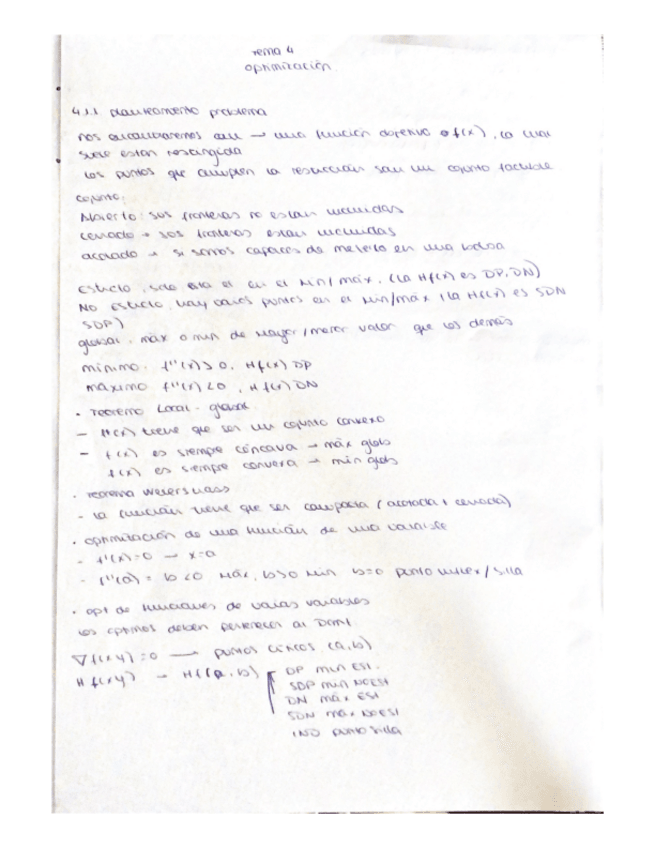 Tema 4
optimización
4.1.1 planteamiento problema
nos encontraremos con → una función objetivo f(x), la cual
suele estar restringida
los puntos que cumplen la restricción son un conjunto factible
conjunto:
Abierto: sus fronteras no estan incluidas
cerrado → sus fronteras estan incluidas
acotado → si somos capaces de meterlo en una bolsa
Estricto, solo esta el en el min/máx, (la Hf(x) es DP, DN)
NO Estricto, hay varios puntos en el min/máx (la Hf(x) es SDN
SDP)
global. máx o min de mayor/menor valor que los demás
mínimo. f''(x) > 0, Hf(x) DP
máximo f''(x) < 0, Hf(x) DN
• Teorema Local - global.
- tiene que ser un conjunto convexo
- f(x) es siempre cóncava → máx glob
f(x) es siempre convexa → min glob
• Teorema Weierstrass
- la función tiene que ser compacta (acotada + cerrada)
• optimización de una función de una variable
- f'(x)=0 → x=a
- f''(a) = b<0 máx, b>0 min b=0 punto inflex/silla
• opt de funciones de varias variables
los optimos deben pertenecer al Dom f
∇f(x,y)=0 → puntos críticos (a,b)
Hf(x,y) → Hf(a,b) DP min EST.
SDP min NO EST
DN máx EST
SDN máx NO EST
IND punto silla